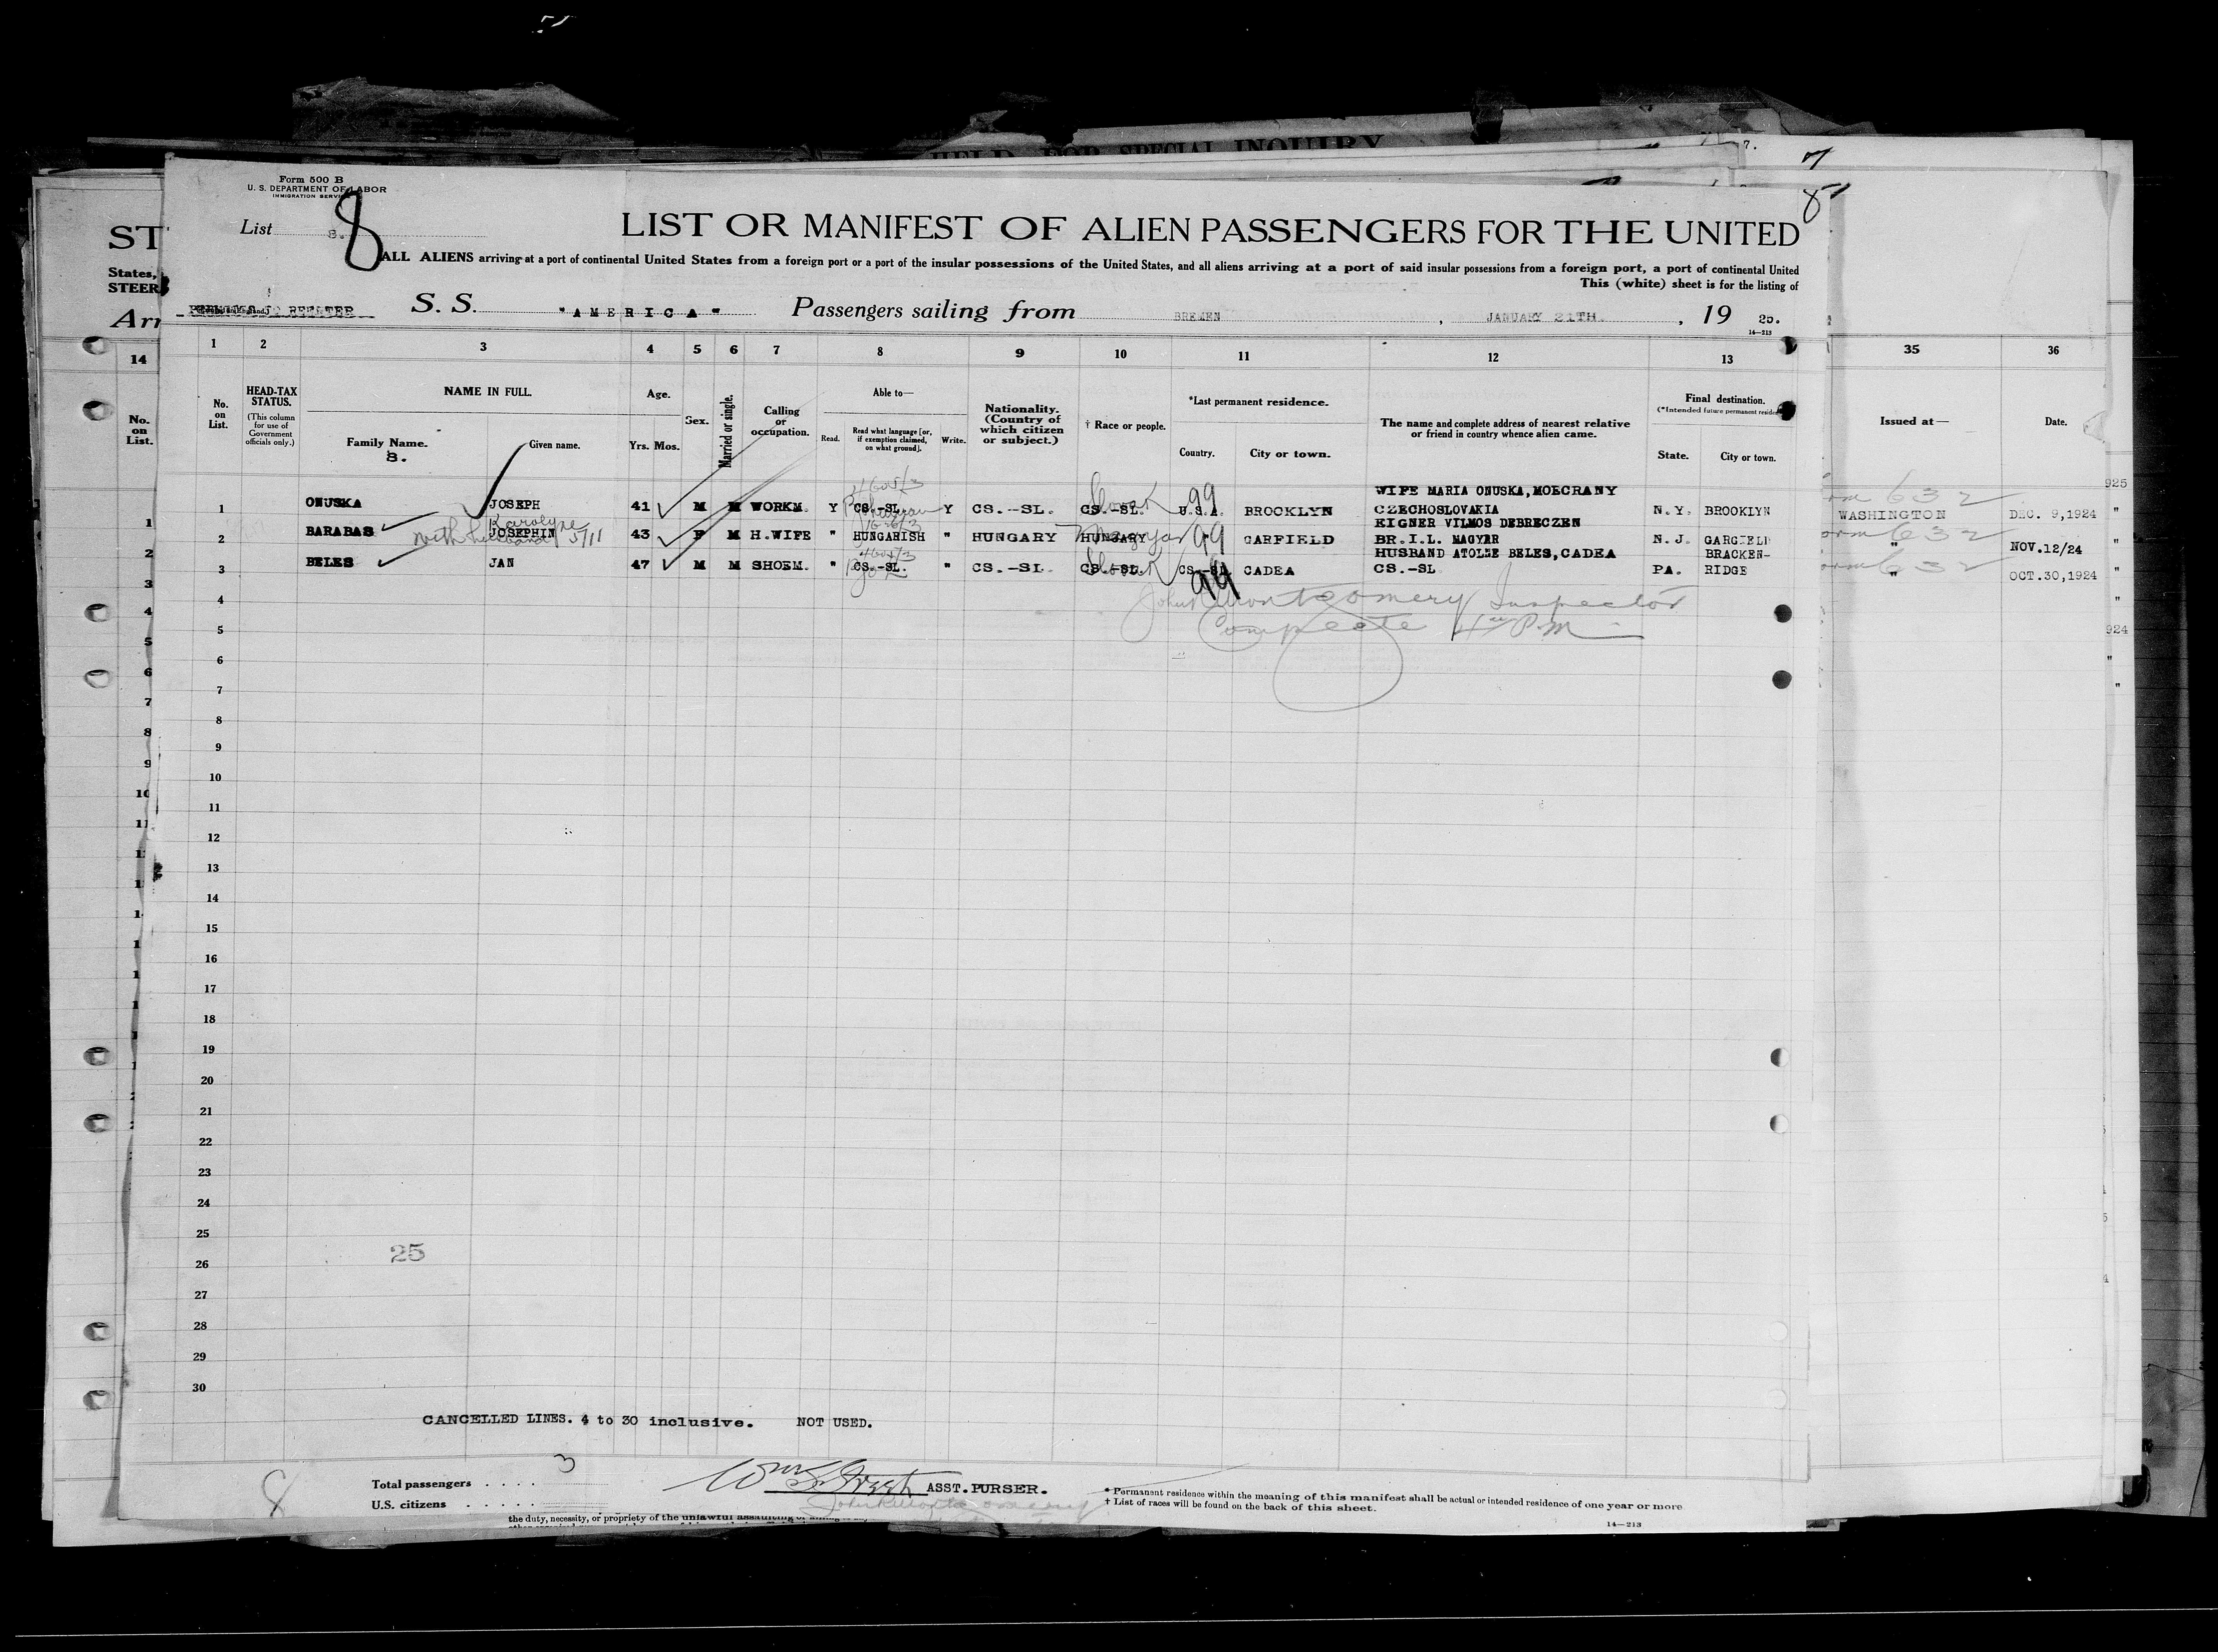 HELD FOR SPECIAL INQUIRY
7.
7
Form 500 B
U. S. DEPARTMENT OF LABOR
IMMIGRATION SERVICE
8
List 8.
8
ST
LIST OR MANIFEST OF ALIEN PASSENGERS FOR THE UNITED
ALL ALIENS arriving at a port of continental United States from a foreign port or a port of the insular possessions of the United States, and all aliens arriving at a port of said insular possessions from a foreign port, a port of continental United
States,
STEER
This (white) sheet is for the listing of
Arr
S. S. "AMERICA" Passengers sailing from BREMEN, JANUARY 21TH, 19 25.
14-213
14 1 2 3 4 5 6 7 8 9 10 11 12 13 35 36
No. on List.
No. on List.
HEAD-TAX STATUS.
(This column for use of Government officials only.)
NAME IN FULL.
Family Name.
8.
Given name.
Age.
Yrs. Mos.
Sex.
Married or single.
Calling or occupation.
Able to—
Read.
Read what language [or, if exemption claimed, on what ground].
Write.
Nationality. (Country of which citizen or subject.)
† Race or people.
*Last permanent residence.
Country.
City or town.
The name and complete address of nearest relative or friend in country whence alien came.
Final destination.
(*Intended future permanent residence)
State.
City or town.
Issued at—
Date.
925
WIFE MARIA ONUSKA, MOKCRANY
1 ONUSKA JOSEPH 41 M M WORKM. Y CS.-SL. Y CS.-SL. CS.-SL. Slovak U.S.A. 99 BROOKLYN CZECHOSLOVAKIA N.Y. BROOKLYN WASHINGTON DEC. 9,1924 "
Karolyne
EIGNER VILMOS DEBRECZEN
2 BARABAS JOSEPHIN 43 F M H.WIFE " HUNGARISH " HUNGARY HUNGARY Magyar " 99 GARFIELD BR.I.L. MAGYAR N.J. GARFIELD " NOV.12/24 "
with husband 5/11
HUSBAND ATOLZE BELES, CADEA BRACKEN-
3 BELES JAN 47 M M SHOEM. " CS.-SL. " CS.-SL CS.-SL. Slovak CS.-SL 99 CADEA CS.-SL PA. RIDGE " OCT.30,1924 "
632
632
632
4 John Montgomery Inspector
5 Complete 4 P.M
924
6
7
8
9
10
11
12
13
14
15
16
17
18
19
20
21
22
23
24
25
25
26
27
28
29
30
CANCELLED LINES. 4 to 30 inclusive. NOT USED.
8
Total passengers . . . . 3
ASST. PURSER.
U.S. citizens . . . . .
* Permanent residence within the meaning of this manifest shall be actual or intended residence of one year or more.
† List of races will be found on the back of this sheet.
the duty, necessity, or propriety of the unlawful assaulting or
14-213